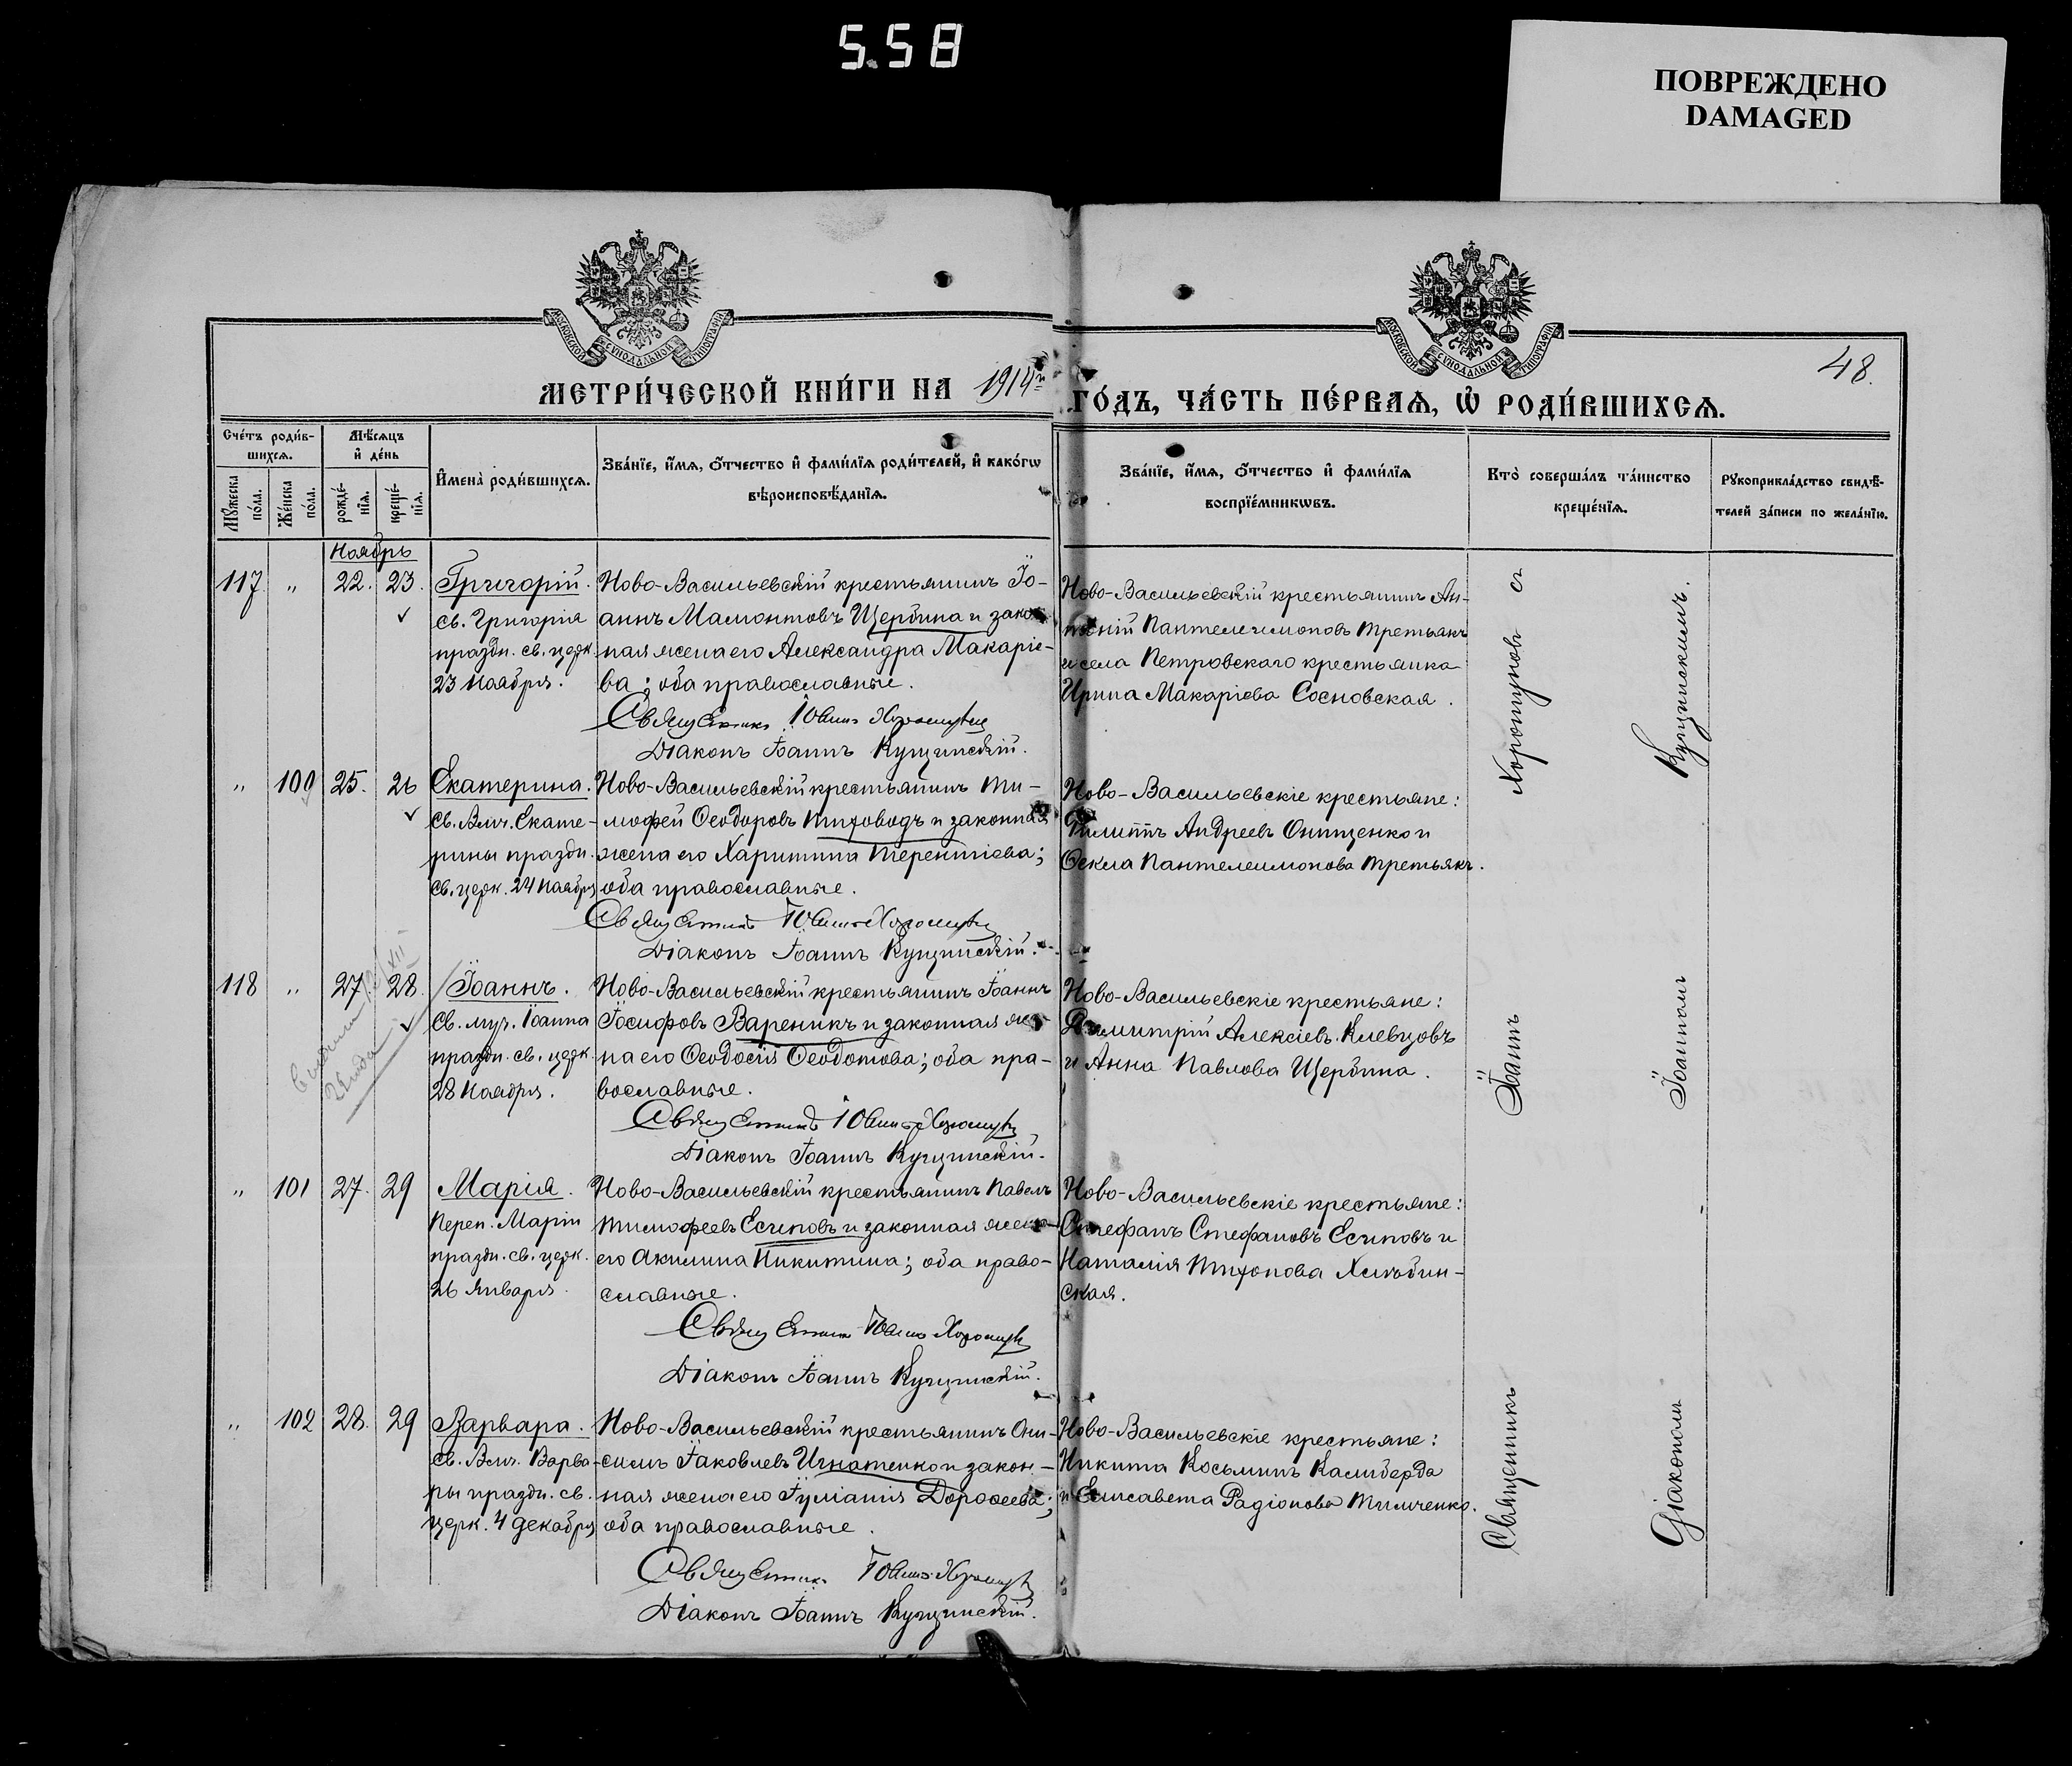 5.58
ПОВРЕЖДЕНО
DAMAGED
МОСКОВСКОЙ СѴНОДАЛЬНОЙ ТИПОГРАФІИ
МОСКОВСКОЙ СѴНОДАЛЬНОЙ ТИПОГРАФІИ
48.
МЕТРИ́ЧЕСКОЙ КНИ́ГИ НА 1914й ГО́ДЪ, ЧА́СТЬ ПЕ́РВАѦ, Ѡ҆ РОДИ́ВШИХСѦ.
Сче́тъ роди́в-
шихсѧ.
Мꙋ́жеска по́ла.
Же́нска по́ла.
Мѣ́сѧцъ
и҆ де́нь
рожде́-
нїѧ.
креще́-
нїѧ.
И҆мена̀ роди́вшихсѧ.
Зва́нїе, и҆́мѧ, ѻ҆́тчество и҆ фами́лїѧ роди́телей, и҆ како́гѡ
вѣроисповѣ́данїѧ.
Зва́нїе, и҆́мѧ, ѻ҆́тчество и҆ фами́лїѧ
воспрїе́мникѡвъ.
Кто̀ соверша́лъ та́инство
креще́нїѧ.
Рꙋкоприкла́дство свидѣ́-
телей за́писи по жела́нїю.
Ноябрь
117. " 22. 23.
Григорій.
Св. Григорія
праздн. св. церк.
23 Ноября.
Ново-Васильевскій крестьянинъ Іо-
аннъ Мамонтовъ Щербина и закон-
ная жена его Александра Макаріе-
ва; оба православные.
Священникъ Іоаннъ Хоропуновъ
Діаконъ Іоаннъ Кущинскій.
Ново-Васильевскій крестьянинъ Ан-
тоній Пантелеимоновъ Третьякъ
и села Петровскаго крестьянка
Ирина Макаріева Сосновская.
" 100 25. 26
Екатерина.
Св. Влмч. Екате-
рины праздн.
св. церк. 24 Ноября
Ново-Васильевскій крестьянинъ Ти-
мофей Ѳеодоровъ Тиховодъ и законная
жена его Харитина Терентіева;
оба православные.
Священникъ Іоаннъ Хоропуновъ
Діаконъ Іоаннъ Кущинскій.
Ново-Васильевскіе крестьяне:
Филиппъ Андреевъ Онищенко и
Ѳекла Пантелеимонова Третьякъ.
118 " 27. 28.
Іоаннъ.
Св. муч. Іоанна
праздн. св. церк.
28 Ноября.
Ново-Васильевскій крестьянинъ Іоаннъ
Іосифовъ Вареникъ и законная же-
на его Ѳеодосія Ѳеодотова; оба пра-
вославные.
Священникъ Іоаннъ Хоропуновъ
Діаконъ Іоаннъ Кущинскій.
Ново-Васильевскіе крестьяне:
Димитрій Алексіевъ Клевцовъ
и Анна Павлова Щербина.
" 101 27. 29
Марія.
Преп. Маріи
праздн. св. церк.
26 Января.
Ново-Васильевскій крестьянинъ Павелъ
Тимофеевъ Есиповъ и законная жена
его Акилина Никитина; оба право-
славные.
Священникъ Іоаннъ Хоропуновъ
Діаконъ Іоаннъ Кущинскій.
Ново-Васильевскіе крестьяне:
Стефанъ Стефановъ Есиповъ и
Наталія Тихонова Хлѣбин-
ская.
" 102 28. 29
Варвара.
Св. Влмч. Варва-
ры праздн. св.
церк. 4 Декабря
Ново-Васильевскій крестьянинъ Они-
симъ Іаковлевъ Игнатенко и закон-
ная жена его Іуліанія Дороѳеева;
оба православные.
Священникъ Іоаннъ Хоропуновъ
Діаконъ Іоаннъ Кущинскій.
Ново-Васильевскіе крестьяне:
Никита Косьминъ Калиберда
и Елисавета Радіонова Тимченко.
Священникъ Іоаннъ Хоропуновъ съ
Діакономъ Іоанномъ Кущинскимъ.